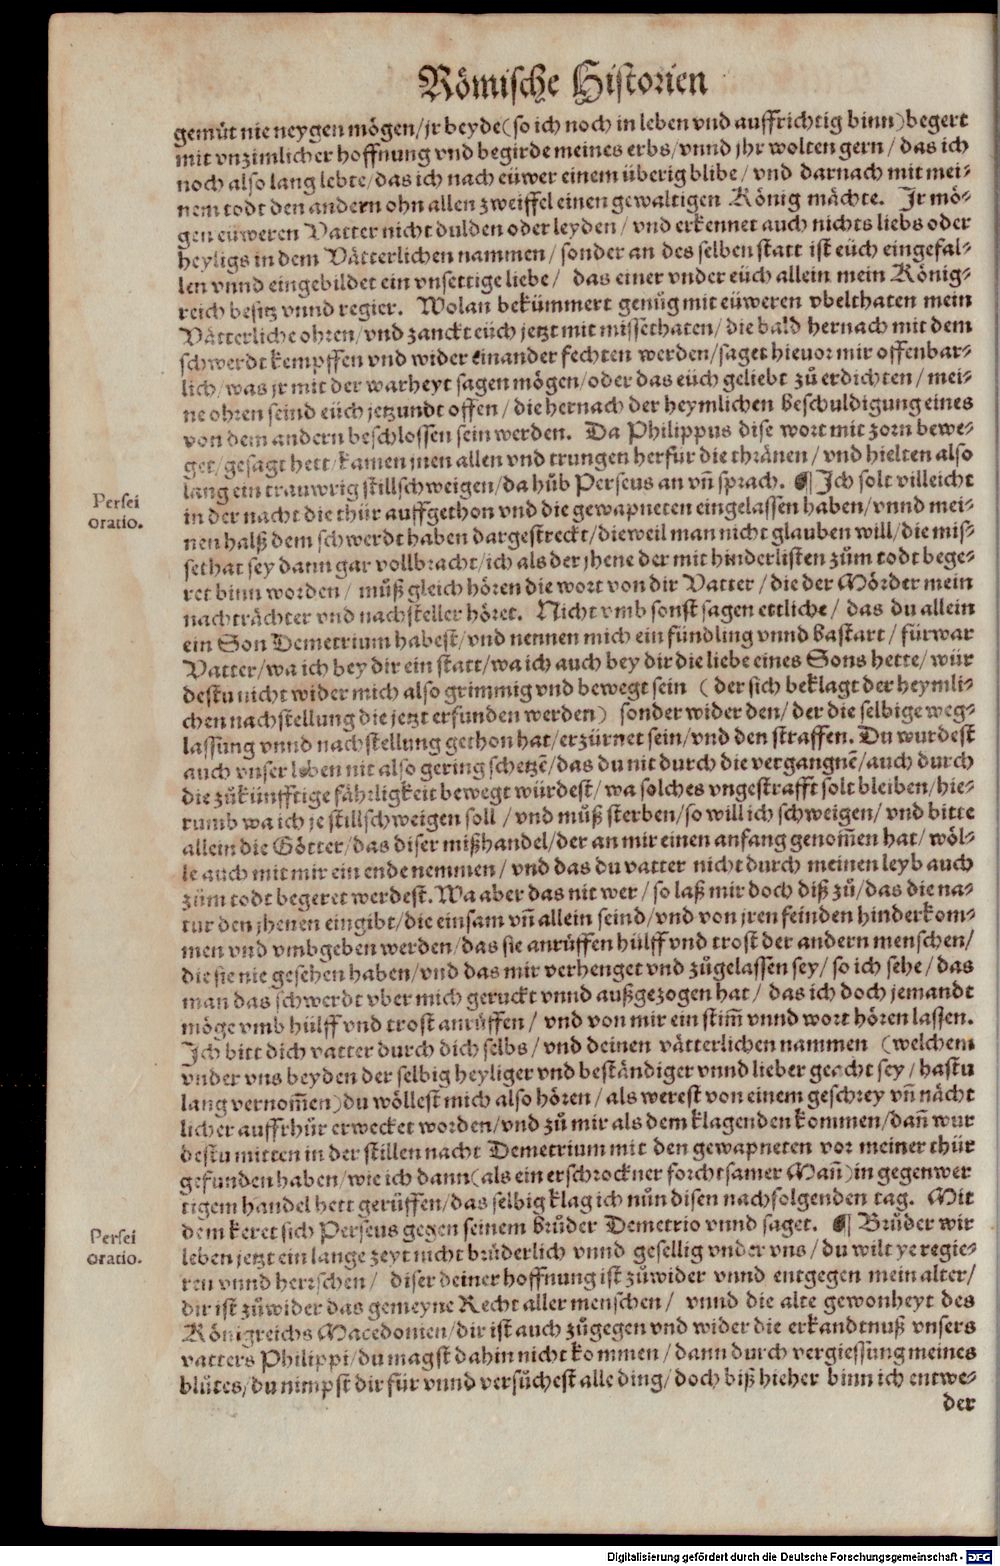 Römische Historien
gemüt nie neygen mögen/jr beyde(so ich noch in leben vnd auffrichtig binn)begert
mit vnzimlicher hoffnung vnd begirde meines erbs/vnnd jhr wolten gern/ das ich
noch also lang lebte/das ich nach eüwer einem überig blibe/ vnd darnach mit mei-
nem todt den andern ohn allen zweiffel einen gewaltigen König mächte. Jr mö-
gen eüweren Vatter nicht dulden oder leyden/ vnd erkennet auch nichts liebs oder
heyligs in dem Vätterlichen nammen/ sonder an des selben statt ist eüch eingefal-
len vnnd eingebildet ein vnsettige liebe/ das einer vnder eüch allein mein König-
reich besitz vnnd regier. Wolan bekümmert genůg mit eüweren vbelthaten mein
Vätterliche ohren/vnd zanckt eüch jetzt mit missethaten/die bald hernach mit dem
schwerdt kempffen vnd wider einander fechten werden/saget hieuor mir offenbar-
lich/was jr mit der warheyt sagen mögen/oder das eüch geliebt zů erdichten/ mei-
ne ohren seind eüch jetzundt offen/die hernach der heymlichen beschuldigung eines
von dem andern beschlossen sein werden. Da Philippus dise wort mit zorn bewe-
get/gesagt hett/kamen jnen allen vnd trungen herfür die thränen/ vnd hielten also
lang ein trauwrig stillschweigen/da hůb Perseus an vñ sprach. ¶ Ich solt villeicht
Persei
oratio.
in der nacht die thür auffgethon vnd die gewapneten eingelassen haben/vnnd mei-
nen halß dem schwerdt haben dargestreckt/dieweil man nicht glauben will/die mis-
sethat sey dann gar vollbracht/ich als der jhene der mit hinderlisten zům todt bege-
ret binn worden/ můß gleich hören die wort von dir Vatter/die der Mörder mein
nachträchter vnd nachsteller höret. Nicht vmb sonst sagen ettliche/ das du allein
ein Son Demetrium habest/vnd nennen mich ein fündling vnnd bastart/ fürwar
Vatter/wa ich bey dir ein statt/wa ich auch bey dir die liebe eines Sons hette/wür
destu nicht wider mich also grimmig vnd bewegt sein (der sich beklagt der heymli-
chen nachstellung die jetzt erfunden werden) sonder wider den/der die selbige weg-
lassung vnnd nachstellung gethon hat/erzürnet sein/vnd den straffen. Du wurdest
auch vnser leben nit also gering schetzē/das du nit durch die vergangnē/auch durch
die zůkünfftige fährligkeit bewegt würdest/wa solches vngestrafft solt bleiben/hie-
rumb wa ich je stillschweigen soll/vnd můß sterben/so will ich schweigen/vnd bitte
allein die Götter/das diser mißhandel/der an mir einen anfang genom̃en hat/wöl-
le auch mit mir ein ende nemmen/vnd das du vatter nicht durch meinen leyb auch
zům todt begeret werdest. Wa aber das nit wer/so laß mir doch diß zů/das die na-
tur den jhenen eingibt/die einsam vñ allein seind/vnd von jren feinden hinderkom-
men vnd vmbgeben werden/das sie anrüffen hülff vnd trost der andern menschen/
die sie nie gesehen haben/vnd das mir verhenget vnd zůgelassen sey/so ich sehe/das
man das schwerdt vber mich geruckt vnnd außgezogen hat/ das ich doch jemandt
möge vmb hülff vnd trost anrüffen/ vnd von mir ein stim̃ vnnd wort hören lassen.
Ich bitt dich vatter durch dich selbs/vnd deinen vätterlichen nammen (welchem
vnder vns beyden der selbig heyliger vnd beständiger vnnd lieber geacht sey/hastu
lang vernom̃en)du wöllest mich also hören/als werest von einem geschrey vñ nächt
licher auffrhůr erwecket worden/vnd zů mir als dem klagenden kommen/dañ wur
destu mitten in der stillen nacht Demetrium mit den gewapneten vor meiner thür
gefunden haben/wie ich dann(als ein erschrockner forchtsamer Mañ)in gegenwer
tigem handel hett gerüffen/das selbig klag ich nůn disen nachfolgenden tag. Mit
dem keret sich Perseus gegen seinem brůder Demetrio vnnd saget. ¶ Brůder wir
Persei
oratio.
leben jetzt ein lange zeyt nicht brüderlich vnnd gesellig vnder vns/du wilt ye regie-
ren vnnd herrschen/ diser deiner hoffnung ist zůwider vnnd entgegen mein alter/
dir ist zůwider das gemeyne Recht aller menschen/ vnnd die alte gewonheyt des
Königreichs Macedonien/dir ist auch zůgegen vnd wider die erkandtnuß vnsers
vatters Philippi/du magst dahin nicht kommen/dann durch vergiessung meines
blůtes/du nimpst dir für vnnd versůchest alle ding/doch biß hieher binn ich entwe-
der
Digitalisierung gefördert durch die Deutsche Forschungsgemeinschaft - DFG